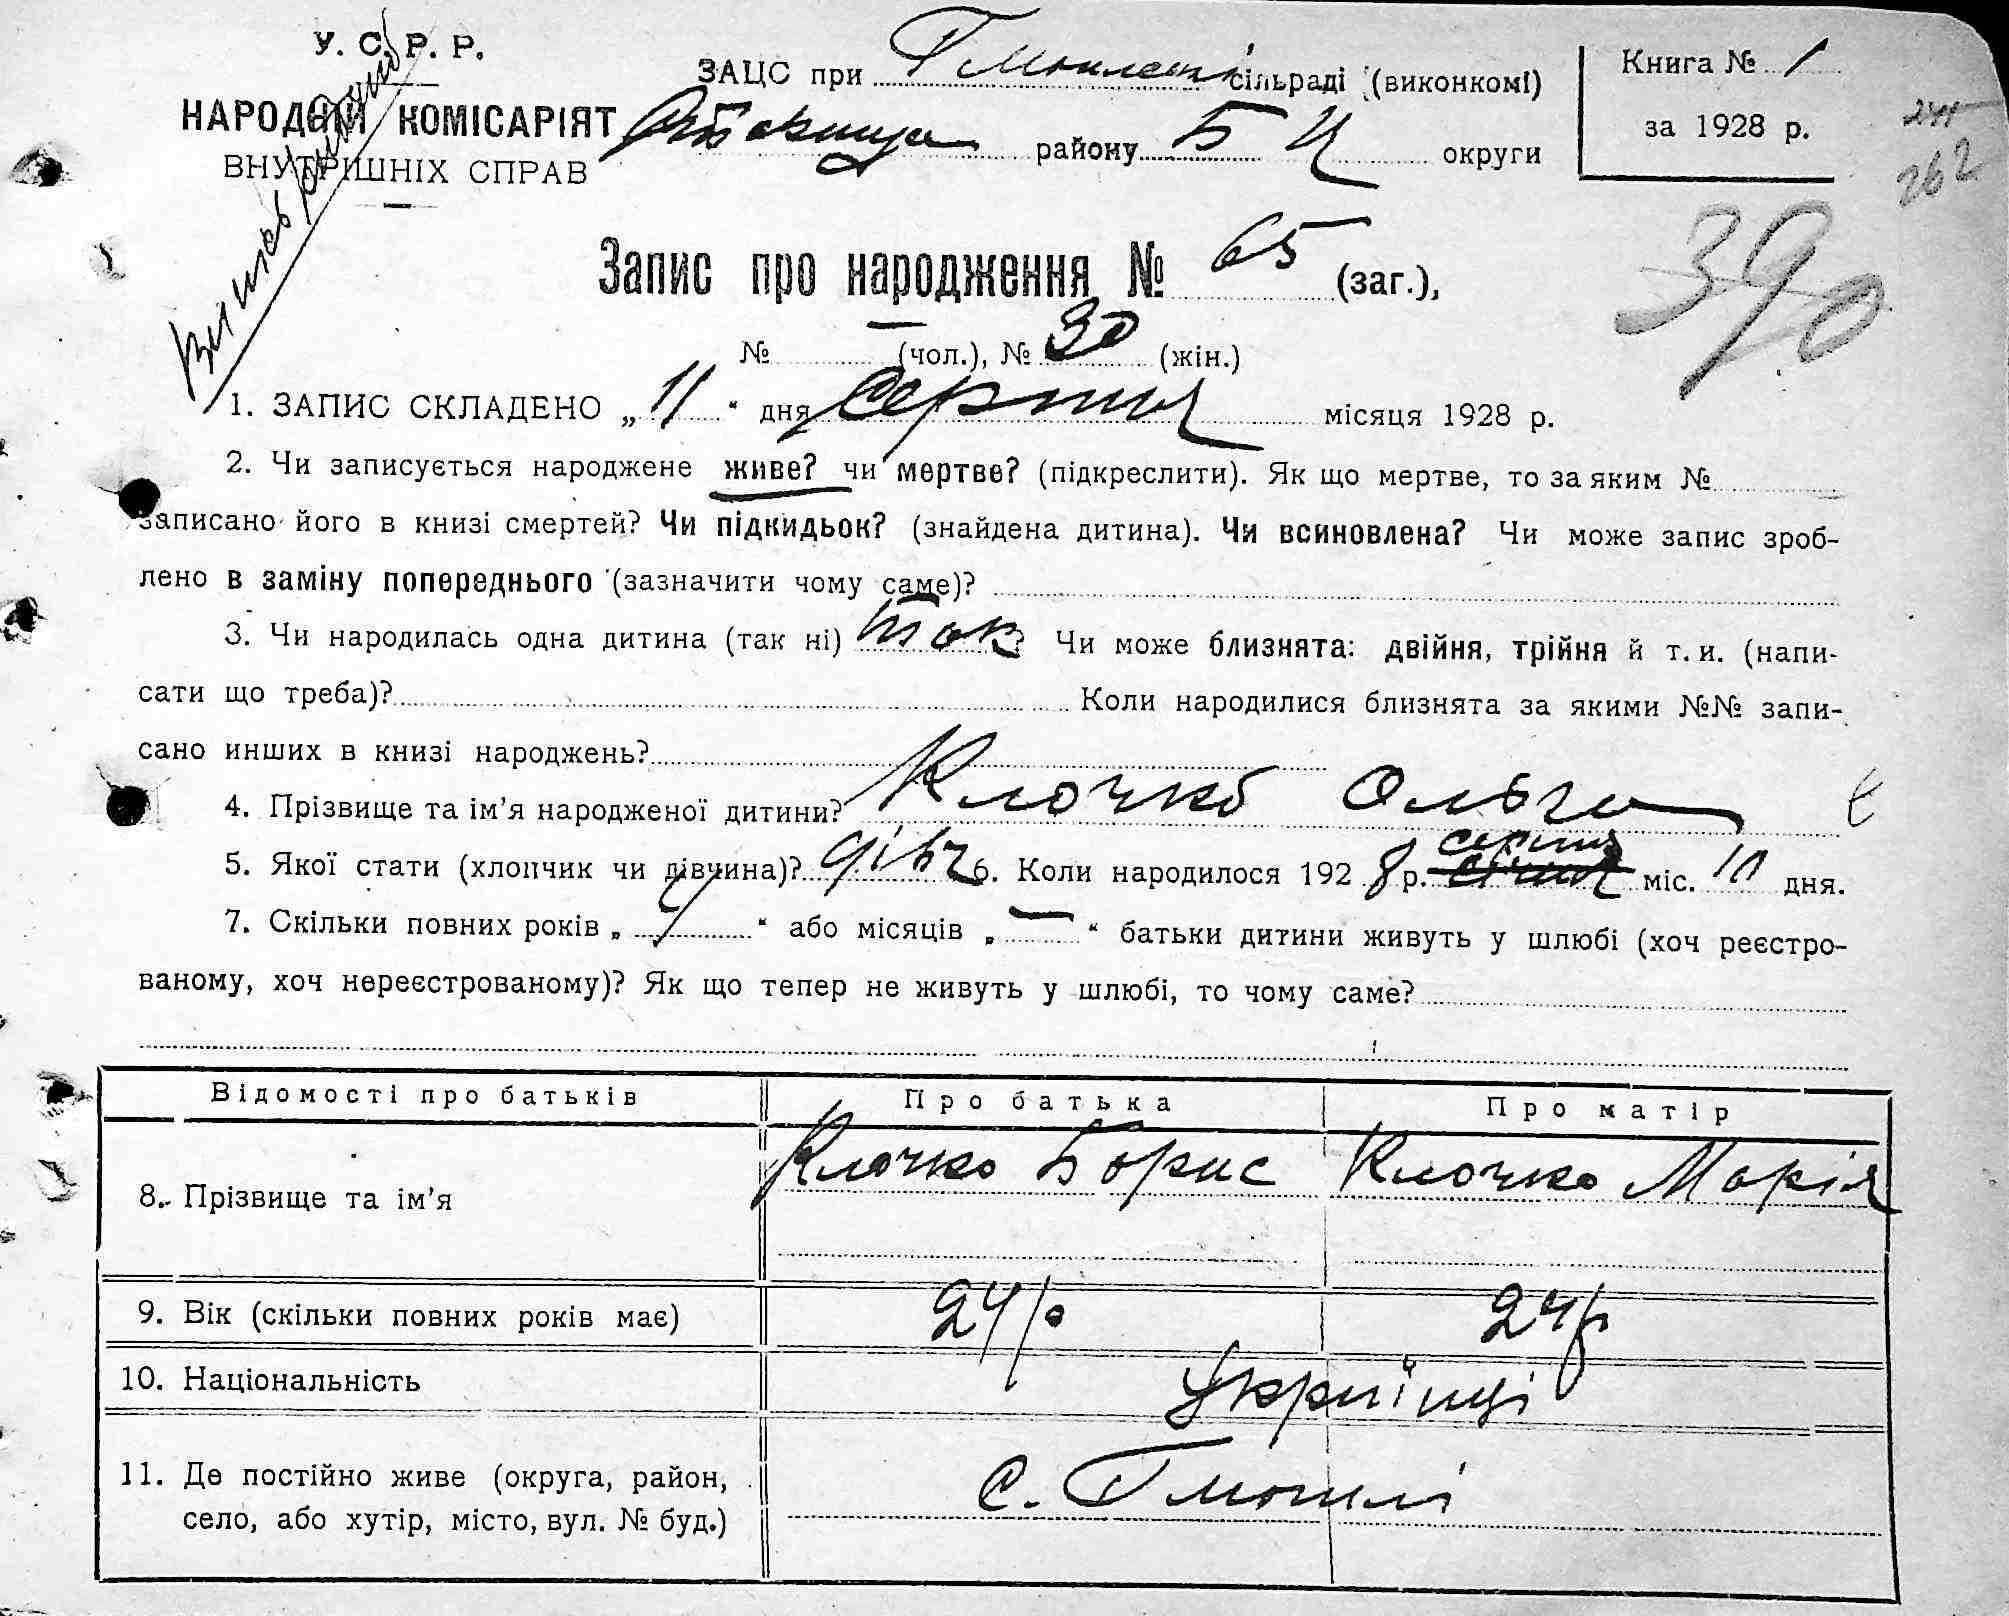 У. С. Р. Р.
НАРОДНІЙ КОМІСАРІЯТ
ВНУТРІШНІХ СПРАВ
ЗАЦС при сільраді (виконкомі)
району Б Ц округи
Книга № 1
за 1928 р.
262
390
Запис про народження № 65 (заг.),
№ — (чол.), № 30 (жін.)
1. ЗАПИС СКЛАДЕНО „ 11 “ дня Серпня місяця 1928 р.
2. Чи записується народжене живе? чи мертве? (підкреслити). Як що мертве, то за яким №
записано його в книзі смертей? Чи підкидьок? (знайдена дитина). Чи всиновлена? Чи може запис зроб-
лено в заміну попереднього (зазначити чому саме)?
3. Чи народилась одна дитина (так ні) так Чи може близнята: двійня, трійня й т. и. (напи-
сати що треба)? Коли народилися близнята за якими №№ запи-
сано инших в книзі народжень?
4. Прізвище та ім’я народженої дитини? Клочко Ольга
5. Якої стати (хлопчик чи дівчина)? дівч 6. Коли народилося 192 8 р. серпня міс. 10 дня.
7. Скільки повних років „ 4 “ або місяців „ — “ батьки дитини живуть у шлюбі (хоч реєстро-
ваному, хоч нереєстрованому)? Як що тепер не живуть у шлюбі, то чому саме?
Відомості про батьків Про батька Про матір
8. Прізвище та ім’я Клочко Борис Клочко Марія
9. Вік (скільки повних років має) 24 р 24 р
10. Національність Українці
11. Де постійно живе (округа, район,
село, або хутір, місто, вул. № буд.) с.